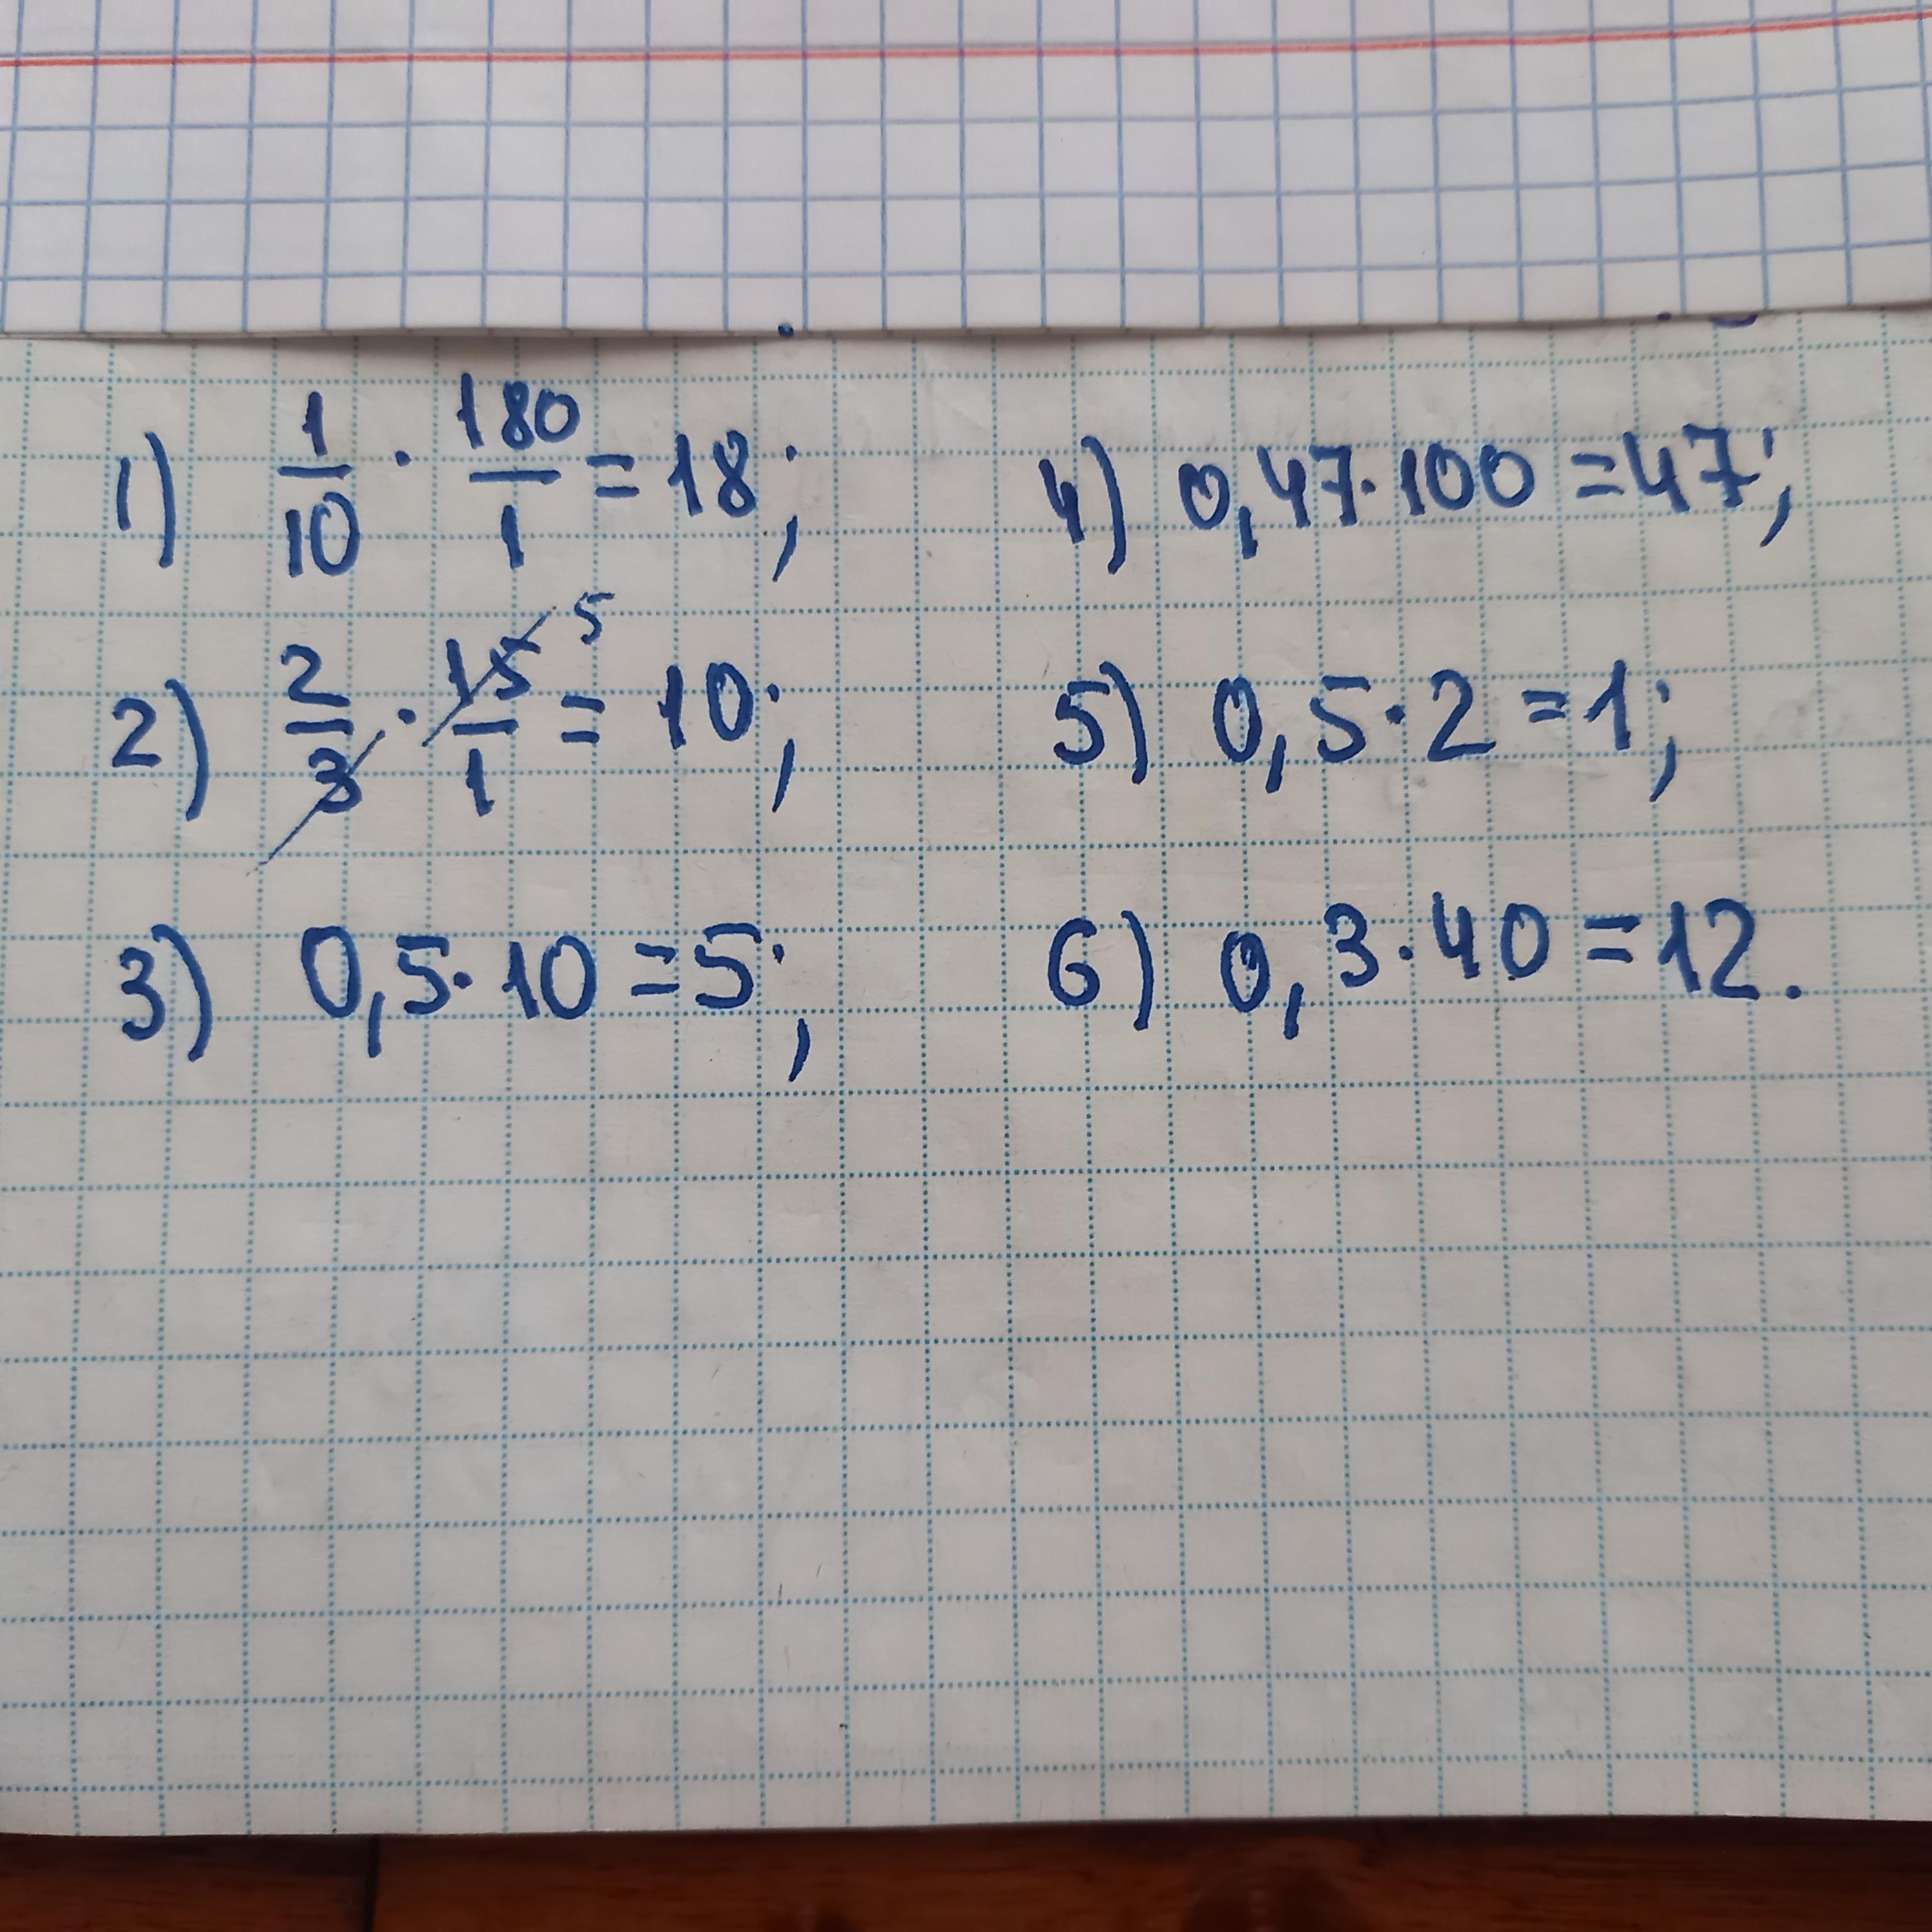 1) 1/10 · 180/1 = 18;
2) 2/3 · 15/1 5 = 10;
3) 0,5 · 10 = 5;
4) 0,47 · 100 = 47;
5) 0,5 · 2 = 1;
6) 0,3 · 40 = 12.